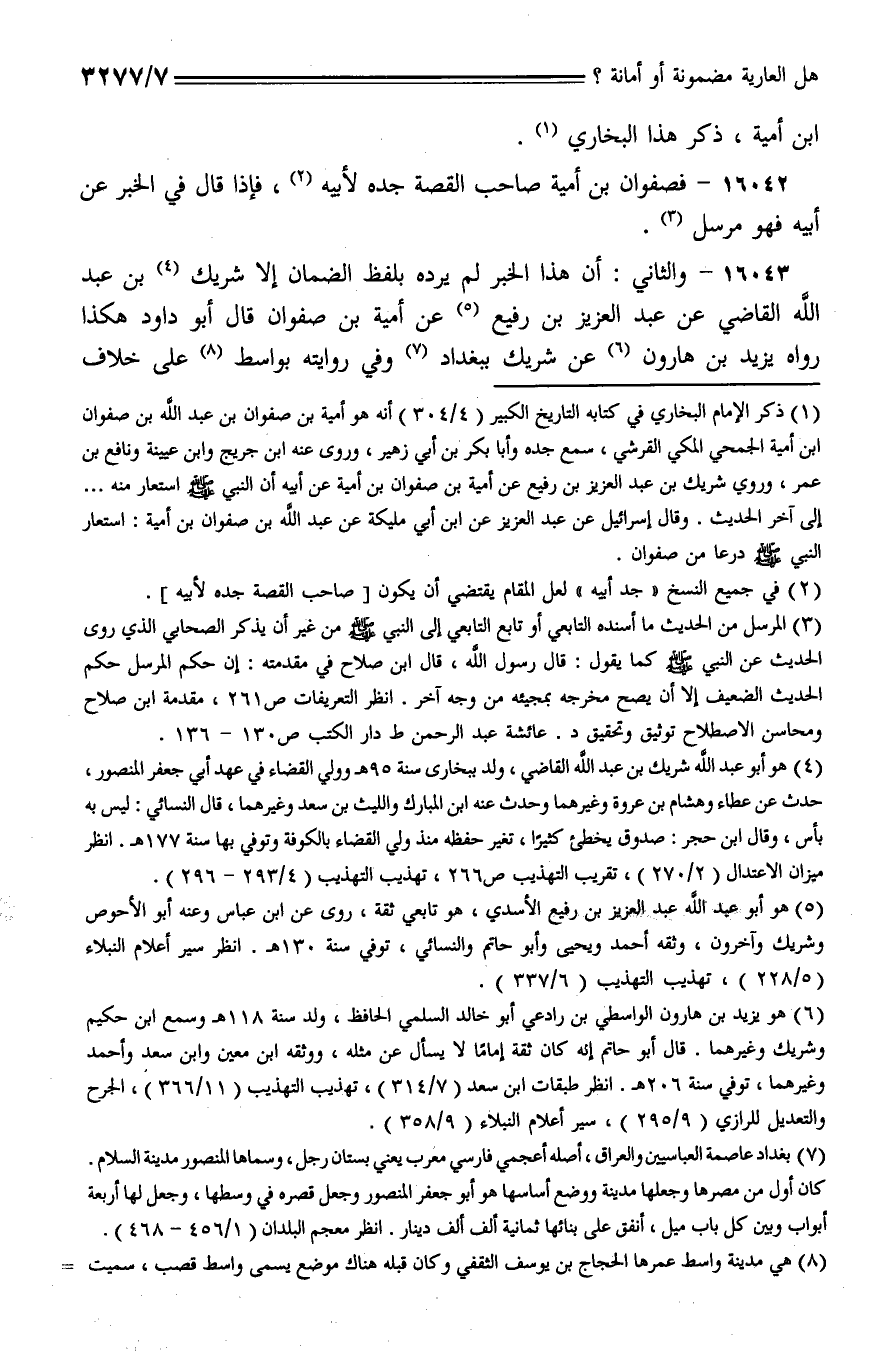 هل العارية مضمونة أو أمانة ؟ ٣٢٧٧/٧
ابن أمية ، ذكر هذا البخاري (١) .
١٦٠٤٢ – فصفوان بن أمية صاحب القصة جده لأبيه (٢) ، فإذا قال في الخبر عن
أبيه فهو مرسل (٣) .
١٦٠٤٣ – والثاني : أن هذا الخبر لم يرده بلفظ الضمان إلا شريك (٤) بن عبد
اللَّه القاضي عن عبد العزيز بن رفيع (٥) عن أمية بن صفوان قال أبو داود هكذا
رواه يزيد بن هارون (٦) عن شريك ببغداد (٧) وفي روايته بواسط (٨) على خلاف
(١) ذكر الإمام البخاري في كتابه التاريخ الكبير ( ٣٠٤/٤ ) أنه هو أمية بن صفوان بن عبد اللَّه بن صفوان
ابن أمية الجمحي المكي القرشي ، سمع جده وأبا بكر بن أبي زهير ، وروى عنه ابن جريج وابن عيينة ونافع بن
عمر ، وروي شريك بن عبد العزيز بن رفيع عن أمية بن صفوان بن أمية عن أبيه أن النبي ﷺ استعار منه ...
إلى آخر الحديث . وقال إسرائيل عن عبد العزيز عن ابن أبي مليكة عن عبد اللَّه بن صفوان بن أمية : استعار
النبي ﷺ درعا من صفوان .
(٢) في جميع النسخ « جد أبيه » لعل المقام يقتضي أن يكون [ صاحب القصة جده لأبيه ] .
(٣) المرسل من الحديث ما أسنده التابعي أو تابع التابعي إلى النبي ﷺ من غير أن يذكر الصحابي الذي روى
الحديث عن النبي ﷺ كما يقول : قال رسول اللَّه ، قال ابن صلاح في مقدمته : إن حكم المرسل حكم
الحديث الضعيف إلا أن يصح مخرجه بمجيئه من وجه آخر . انظر التعريفات ص٢٦١ ، مقدمة ابن صلاح
ومحاسن الاصطلاح توثيق وتحقيق د . عائشة عبد الرحمن ط دار الكتب ص١٣٠ – ١٣٦ .
(٤) هو أبو عبد اللَّه شريك بن عبد اللَّه القاضي ، ولد ببخارى سنة ٩٥هـ وولي القضاء في عهد أبي جعفر المنصور ،
حدث عن عطاء وهشام بن عروة وغيرهما وحدث عنه ابن المبارك والليث بن سعد وغيرهما ، قال النسائي : ليس به
بأس ، وقال ابن حجر : صدوق يخطئ كثيرًا ، تغير حفظه منذ ولي القضاء بالكوفة وتوفي بها سنة ١٧٧هـ . انظر
ميزان الاعتدال ( ٢٧٠/٢ ) ، تقريب التهذيب ص٢٦٦ ، تهذيب التهذيب ( ٢٩٣/٤ – ٢٩٦ ) .
(٥) هو أبو عبد اللَّه عبد العزيز بن رفيع الأسدي ، هو تابعي ثقة ، روى عن ابن عباس وعنه أبو الأحوص
وشريك وآخرون ، وثقه أحمد ويحيى وأبو حاتم والنسائي ، توفي سنة ١٣٠هـ . انظر سير أعلام النبلاء
( ٢٢٨/٥ ) ، تهذيب التهذيب ( ٣٣٧/٦ ) .
(٦) هو يزيد بن هارون الواسطي بن رادعي أبو خالد السلمي الحافظ ، ولد سنة ١١٨هـ وسمع ابن حكيم
وشريك وغيرهما . قال أبو حاتم إنه كان ثقة إمامًا لا يسأل عن مثله ، ووثقه ابن معين وابن سعد وأحمد
وغيرهما ، توفي سنة ٢٠٦هـ . انظر طبقات ابن سعد ( ٣١٤/٧ ) ، تهذيب التهذيب ( ٣٦٦/١١ ) ، الجرح
والتعديل للرازي ( ٢٩٥/٩ ) ، سير أعلام النبلاء ( ٣٥٨/٩ ) .
(٧) بغداد عاصمة العباسيين والعراق ، أصله أعجمي فارسي معرب يعني بستان رجل ، وسماها المنصور مدينة السلام .
كان أول من مصرها وجعلها مدينة ووضع أساسها هو أبو جعفر المنصور وجعل قصره في وسطها ، وجعل لها أربعة
أبواب وبين كل باب ميل ، أنفق على بنائها ثمانية ألف ألف دينار . انظر معجم البلدان ( ٤٥٦/١ – ٤٦٨ ) .
(٨) هي مدينة واسط عمرها الحجاج بن يوسف الثقفي وكان قبله هناك موضع يسمى واسط قصب ، سميت =